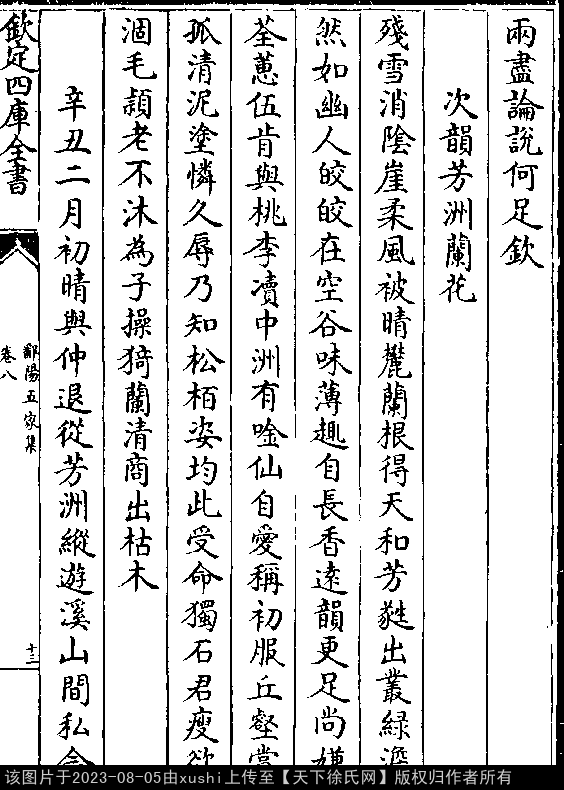 兩盡論說何足欽
次韻芳洲蘭花
殘雪消陰崖柔風被晴麓蘭根得天和芳蕤出叢綠
然如幽人皎皎在空谷味薄趣自長香遠韻更足尚嫌
荃蕙伍肯與桃李瀆中洲有唫仙自愛稱初服丘壑
孤清泥塗憐久辱乃知松栢姿均此受命獨石君瘦欲
涸毛穎老不沐為子操猗蘭清商出枯木
辛丑二月初晴與仲退從芳洲縱遊溪山間私
欽定四庫全書
鄱陽五家集
卷八
十三
该图片于2023-08-05由xushi上传至【天下徐氏网】版权归作者所有